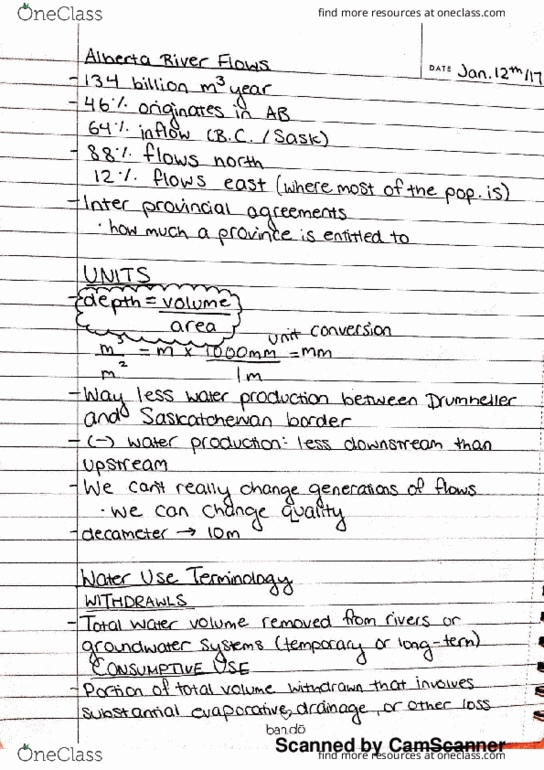 OneClass
find more resources at oneclass.com
DATE Jan. 12th/17
Alberta River Flows
- 134 billion m³ year
- 46% originates in AB
64% inflow (B.C. / Sask)
- 88% flows north
12% flows east (where most of the pop. is)
- Inter provincial agreements
· how much a province is entitled to
UNITS
- depth = volume
area
unit conversion
m³ = m x 1000mm = mm
m² 1m
- Way less water production between Drumheller
and Saskatchewan border
- (-) water production: less downstream than
upstream
- We can't really change generations of flows
· we can change quality
- decameter → 10m
Water Use Terminology
WITHDRAWLS
- Total water volume removed from rivers or
groundwater systems (temporary or long-term)
CONSUMPTIVE USE
- Portion of total volume withdrawn that involves
substantial evaporative, drainage, or other loss
ban.dō
Scanned by CamScanner
OneClass
find more resources at oneclass.com